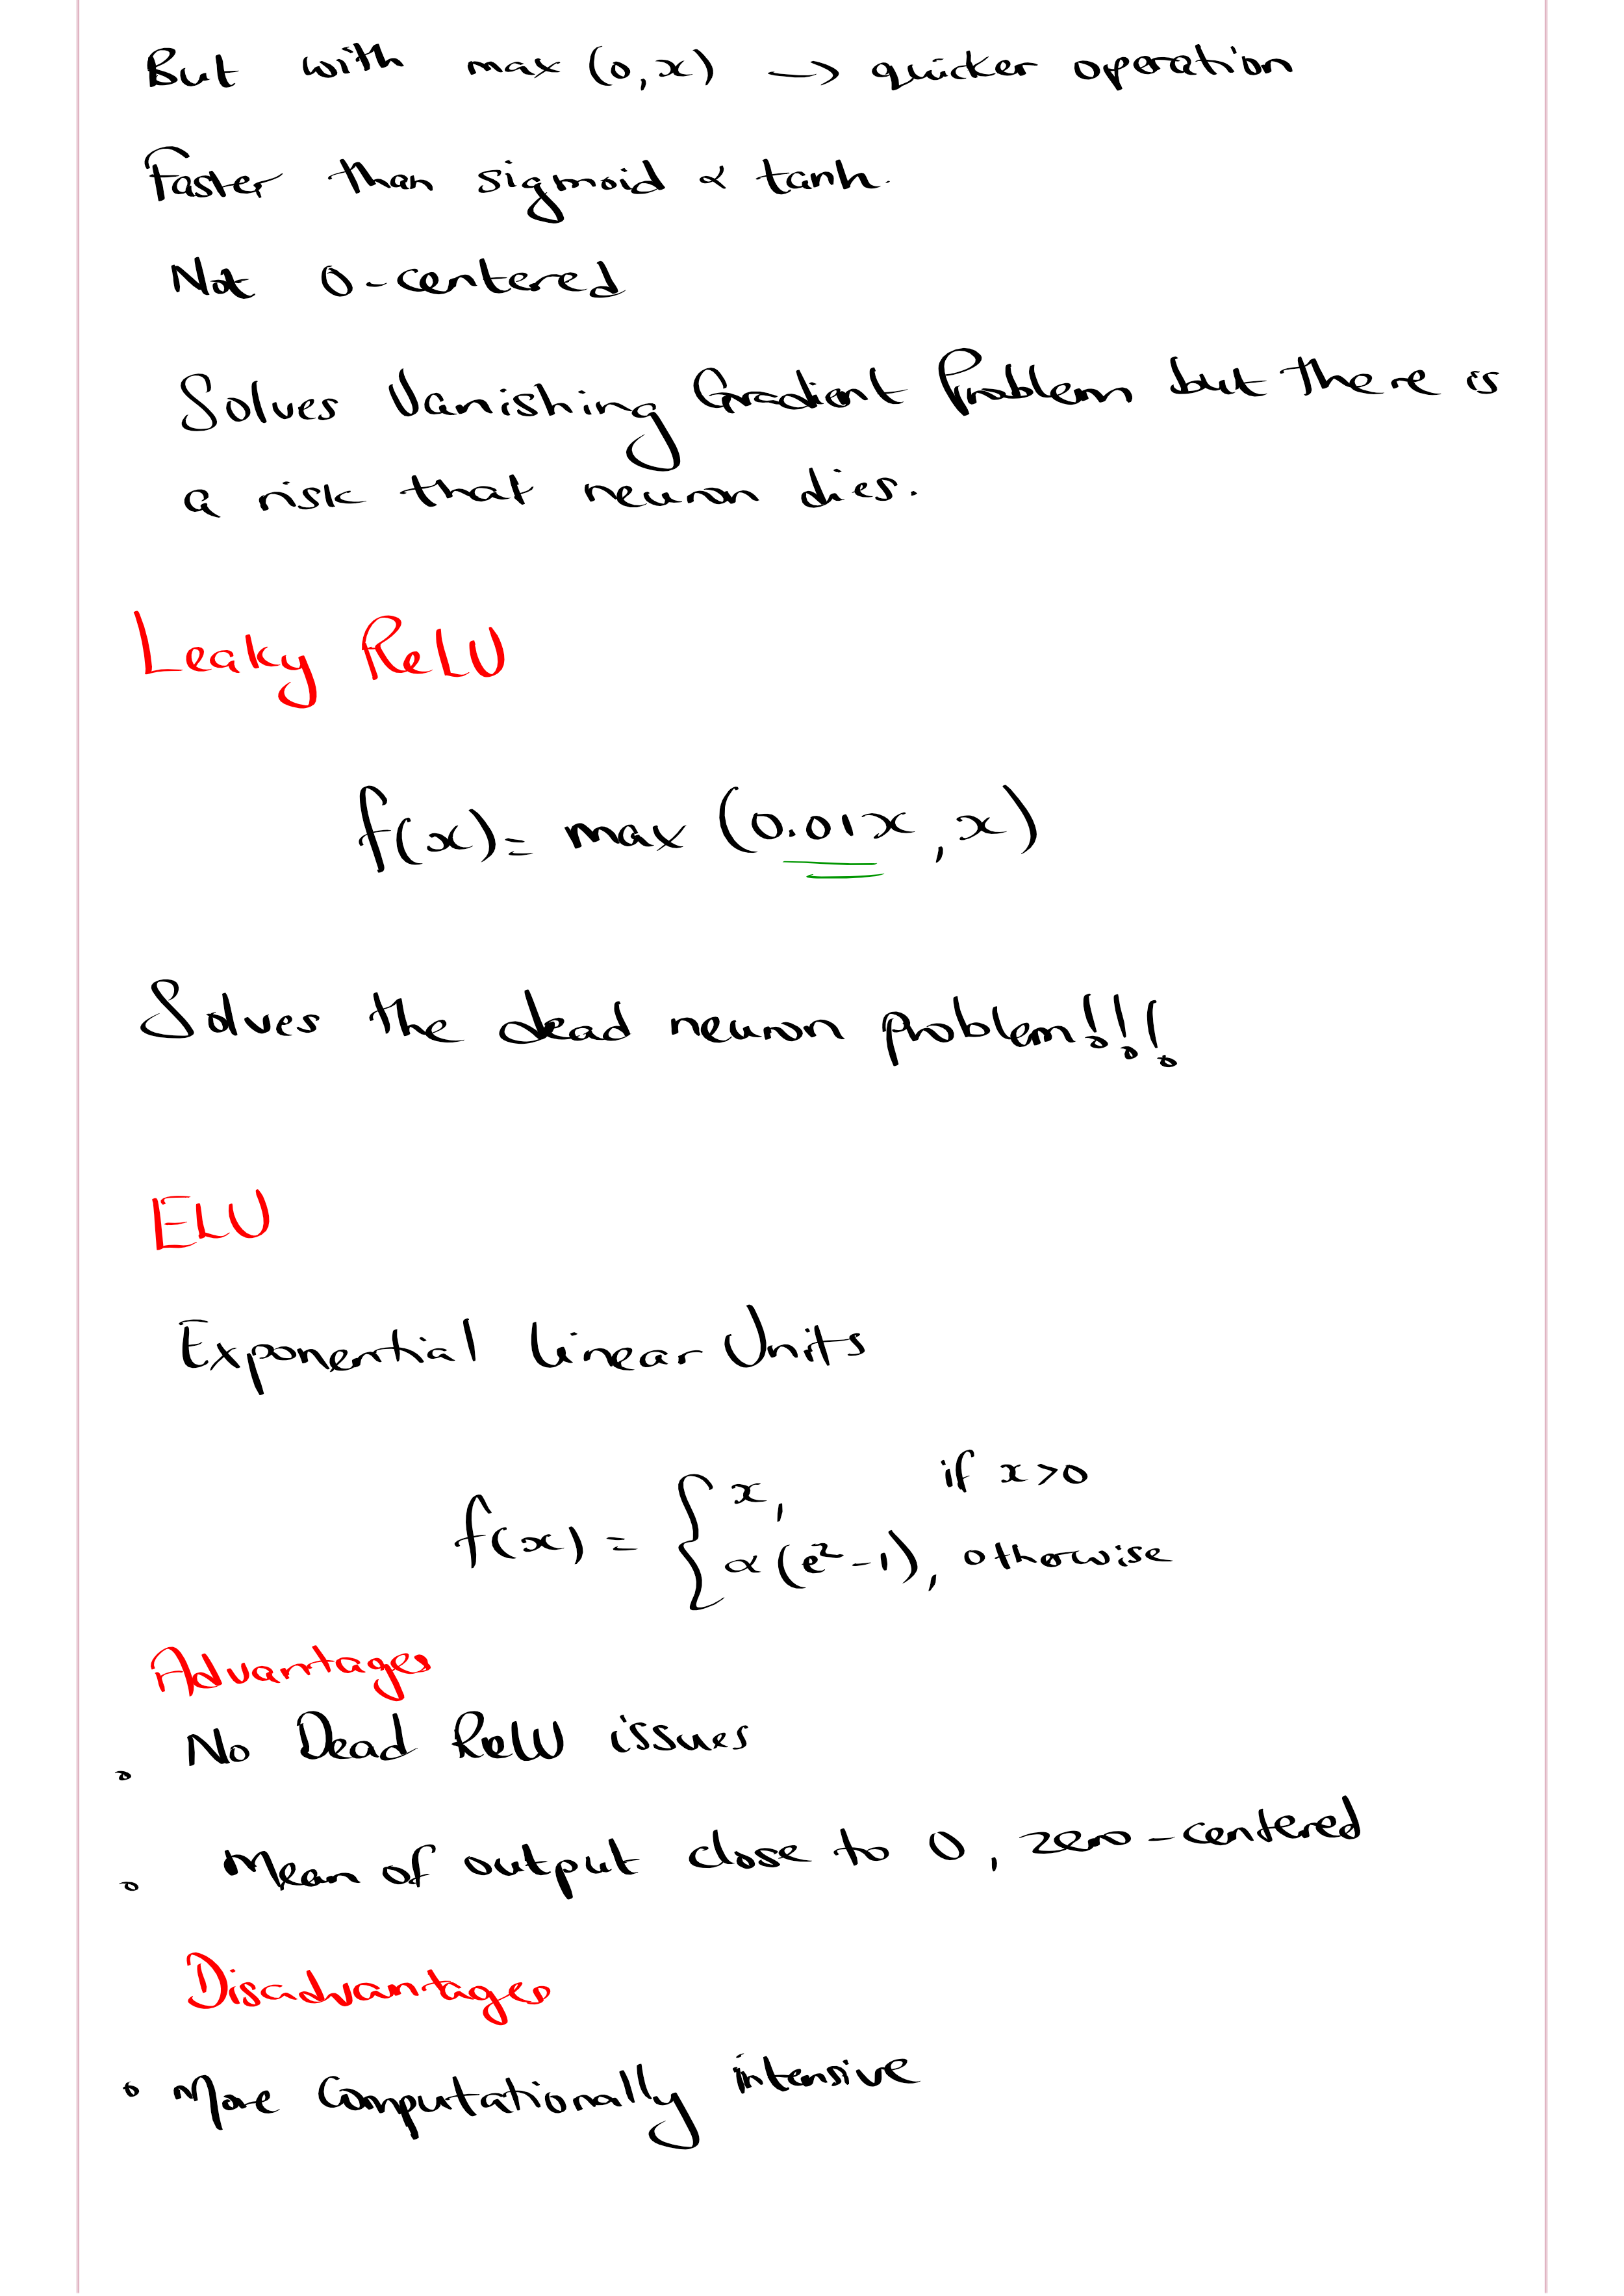 But with max (0,x) → quicker operation
Faster than sigmoid & tanh.
Not 0-centered
Solves Vanishing Gradient Problem but there is
a risk that neuron dies.
Leaky ReLU
f(x)= max (0.01x, x)
Solves the dead neuron problem!!!
ELU
Exponential Linear Units
f(x) = { x, if x>0
α(e²-1), otherwise
Advantages
• No Dead ReLU issues
• Mean of output close to 0, zero-centered
Disadvantages
• More Computationally intensive